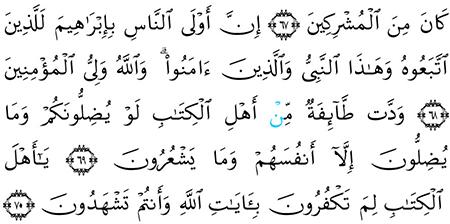 كَانَ مِنَ ٱلْمُشْرِكِينَ ﴿٦٧﴾ إِنَّ أَوْلَى ٱلنَّاسِ بِإِبْرَٰهِيمَ لَلَّذِينَ
ٱتَّبَعُوهُ وَهَٰذَا ٱلنَّبِىُّ وَٱلَّذِينَ ءَامَنُوا۟ ۗ وَٱللَّهُ وَلِىُّ ٱلْمُؤْمِنِينَ
﴿٦٨﴾ وَدَّت طَّآئِفَةٌ مِّنْ أَهْلِ ٱلْكِتَٰبِ لَوْ يُضِلُّونَكُمْ وَمَا
يُضِلُّونَ إِلَّآ أَنفُسَهُمْ وَمَا يَشْعُرُونَ ﴿٦٩﴾ يَٰٓأَهْلَ
ٱلْكِتَٰبِ لِمَ تَكْفُرُونَ بِـَٔايَٰتِ ٱللَّهِ وَأَنتُمْ تَشْهَدُونَ ﴿٧٠﴾